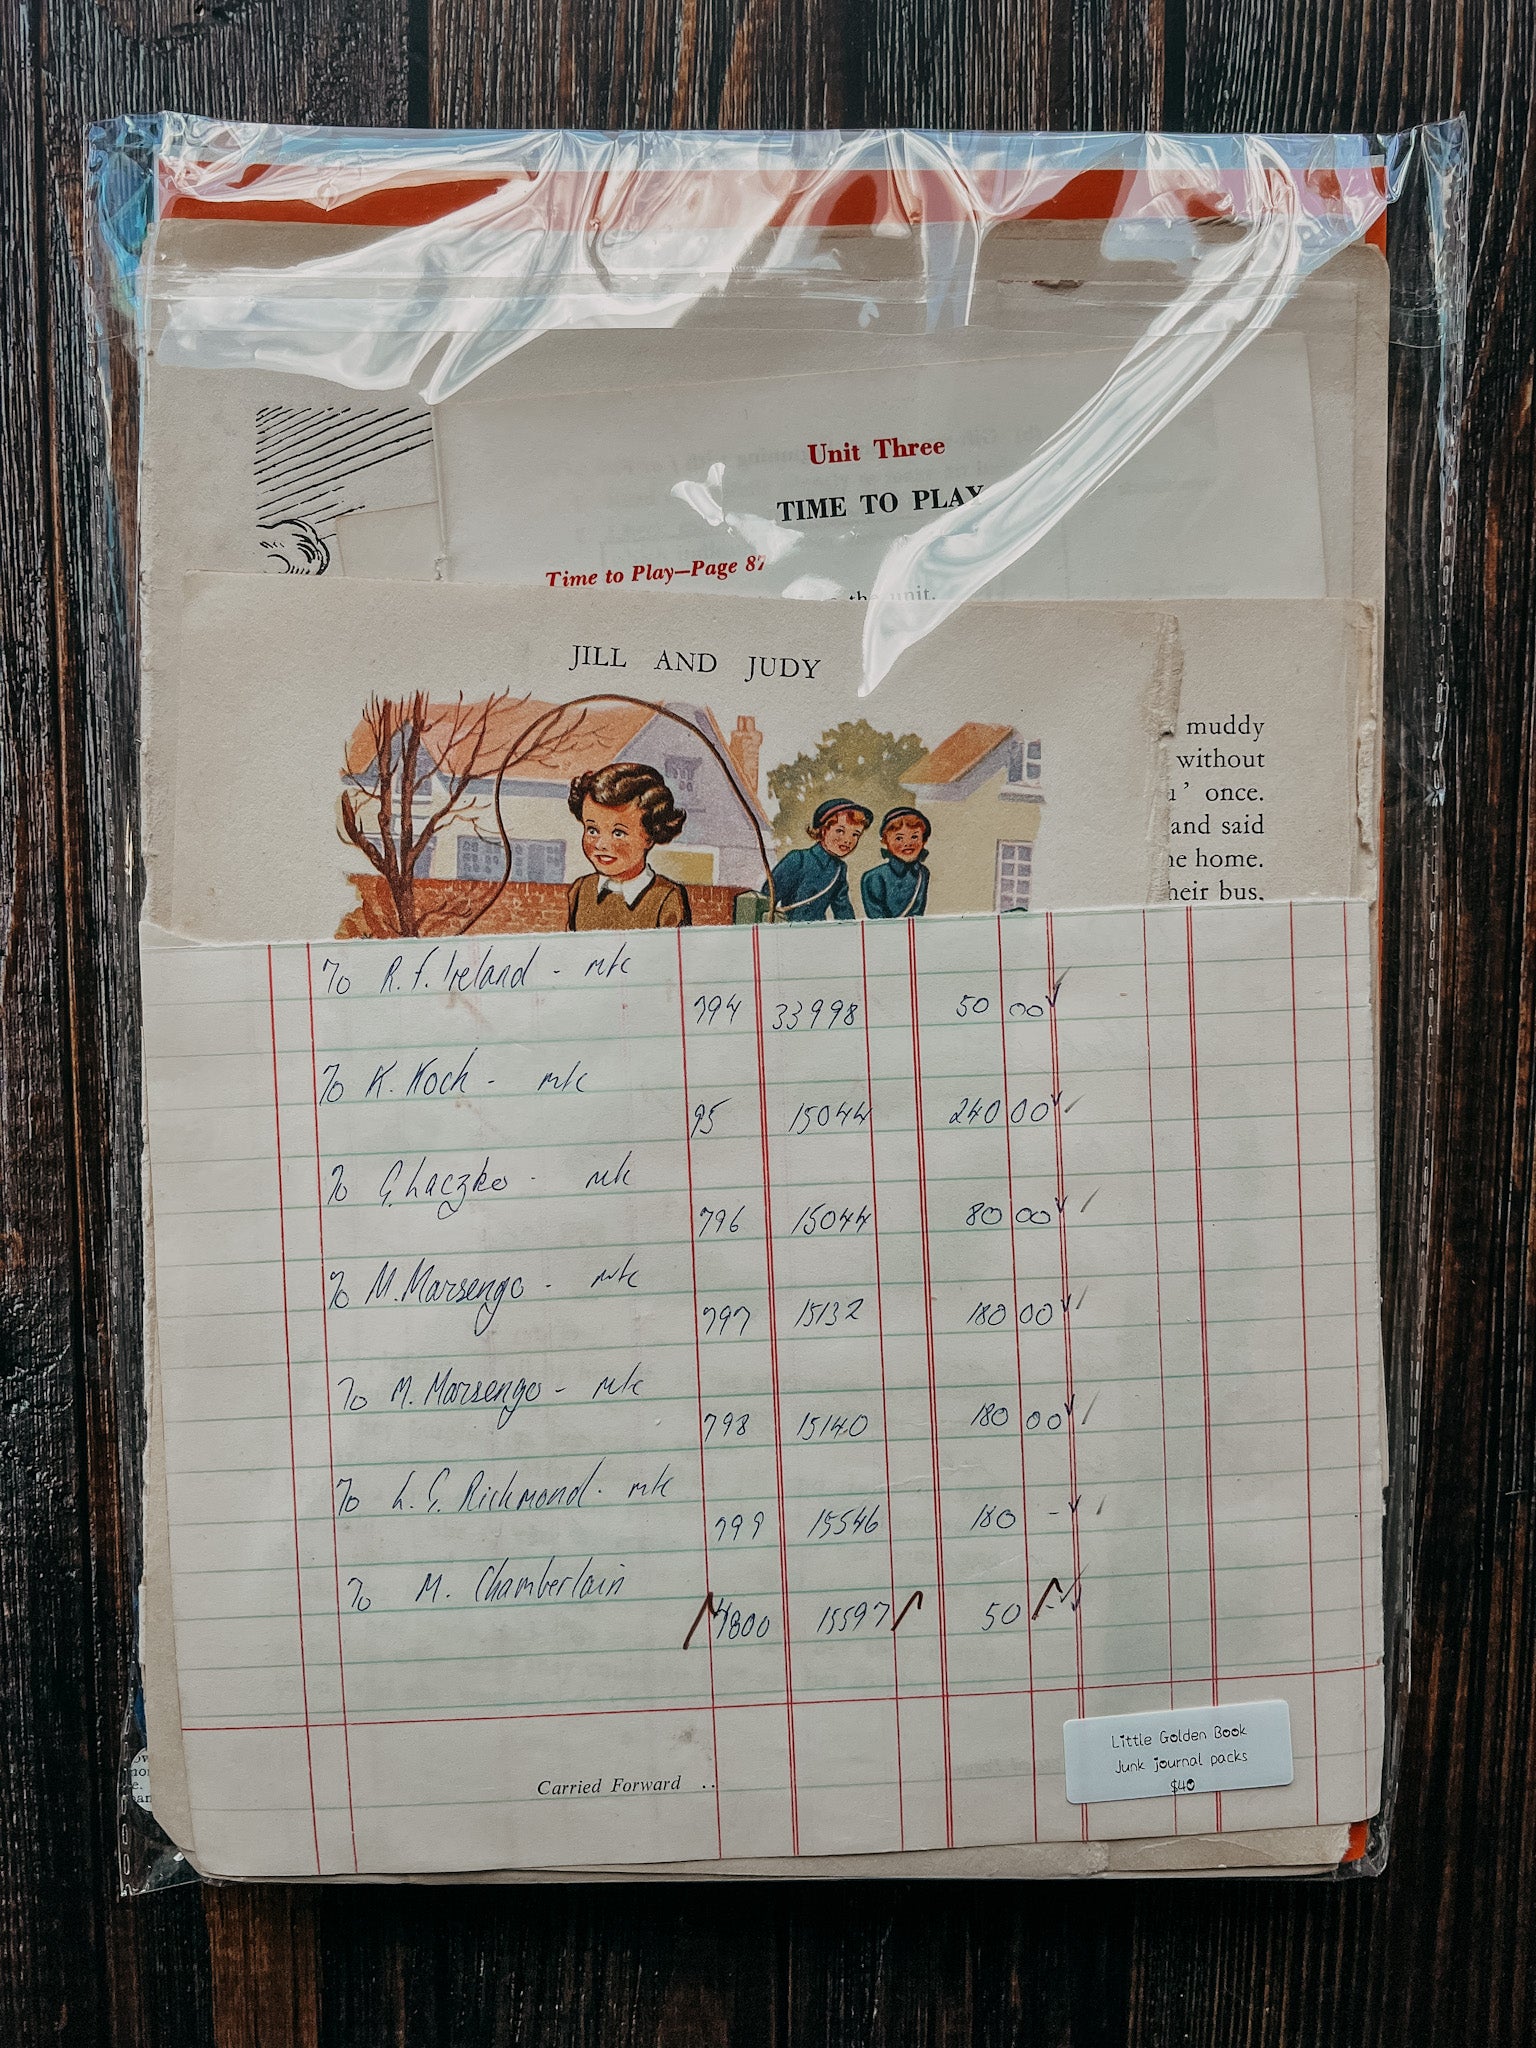 Unit Three
TIME TO PLAY
Time to Play—Page 87
the unit.
JILL AND JUDY
muddy
without
once.
and said
home.
their bus,
To R. F. Ireland - mtc
794 33998 50 00
To K. Koch - mtc
95 15044 240 00
To G. Laczko - mtc
796 15044 80 00
To M. Marsengo - mtc
797 15132 180 00
To M. Marsengo - mtc
798 15140 180 00
To L. G. Richmond - mtc
799 15546 180 -
To M. Chamberlain
4800 15597 50 -
Carried Forward ..
Little Golden Book
Junk journal packs
$40